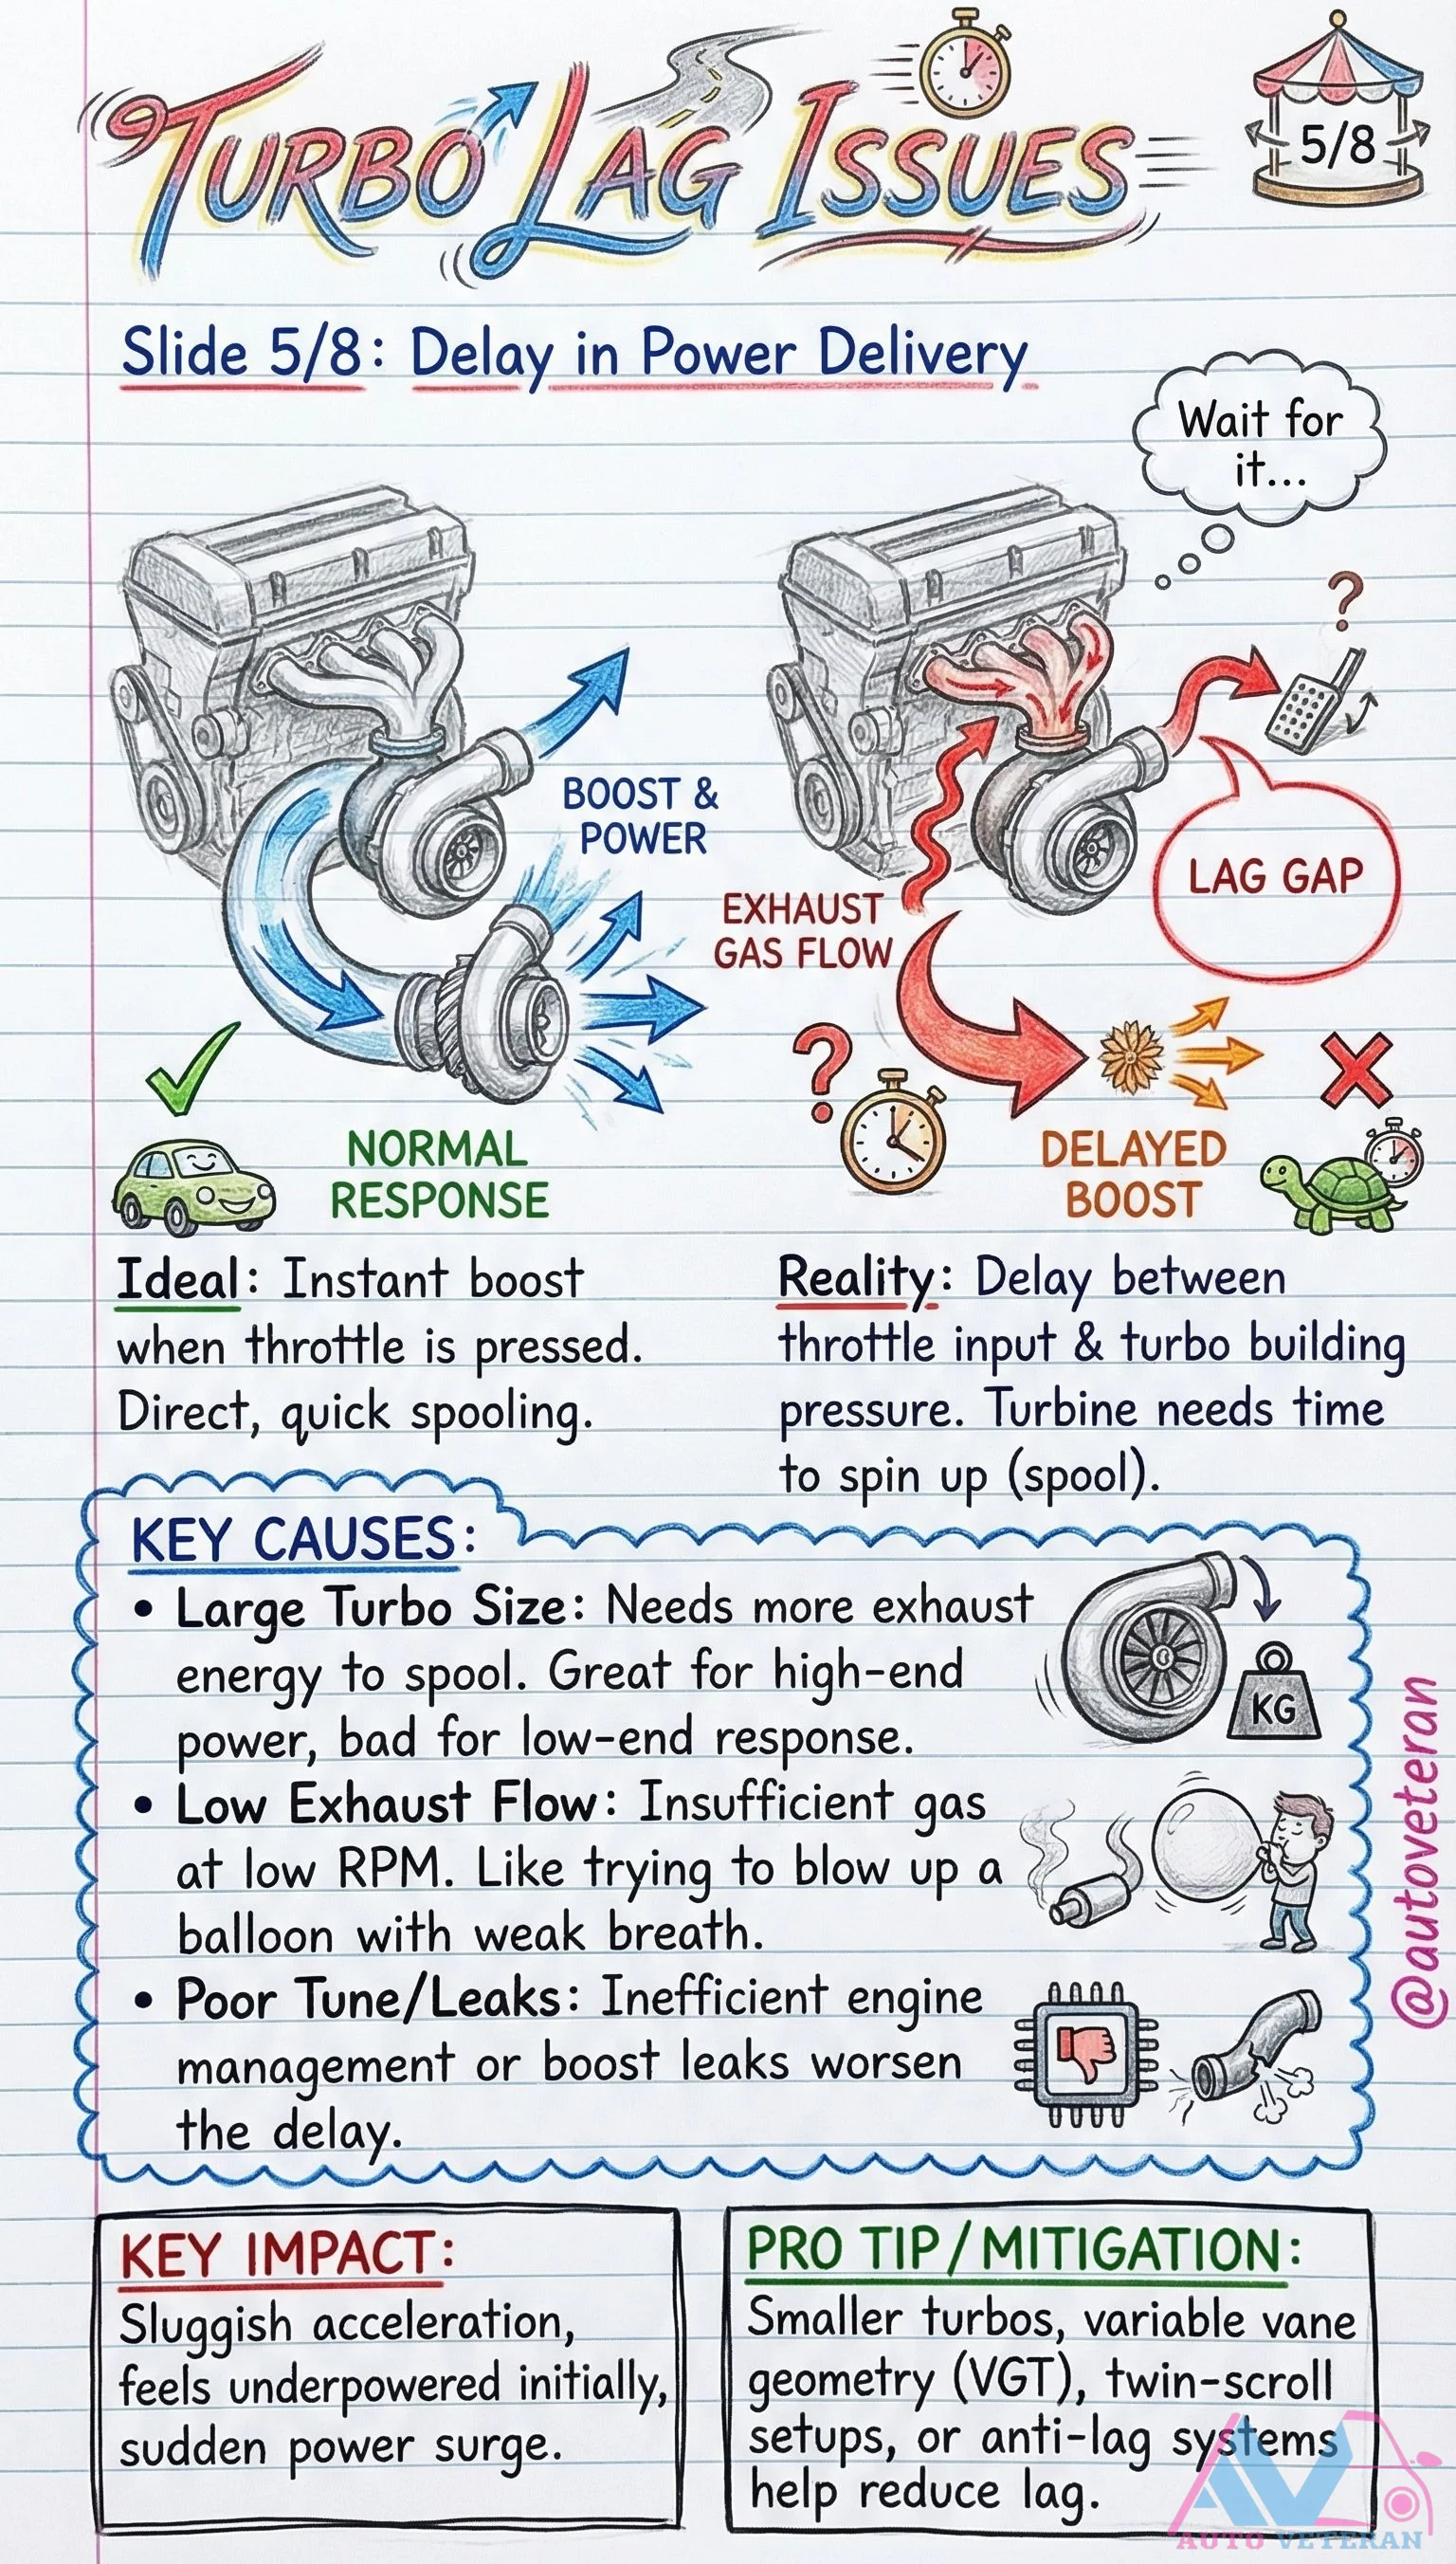 TURBO LAG ISSUES
5/8
Slide 5/8: Delay in Power Delivery
Wait for
it...
?
BOOST &
POWER
LAG GAP
EXHAUST
GAS FLOW
?
NORMAL
RESPONSE
DELAYED
BOOST
Ideal: Instant boost
when throttle is pressed.
Direct, quick spooling.
Reality: Delay between
throttle input & turbo building
pressure. Turbine needs time
to spin up (spool).
KEY CAUSES:
• Large Turbo Size: Needs more exhaust
energy to spool. Great for high-end
power, bad for low-end response.
KG
• Low Exhaust Flow: Insufficient gas
at low RPM. Like trying to blow up a
balloon with weak breath.
• Poor Tune/Leaks: Inefficient engine
management or boost leaks worsen
the delay.
@autoveteran
KEY IMPACT:
Sluggish acceleration,
feels underpowered initially,
sudden power surge.
PRO TIP/MITIGATION:
Smaller turbos, variable vane
geometry (VGT), twin-scroll
setups, or anti-lag systems
help reduce lag.
AV
AUTO VETERAN